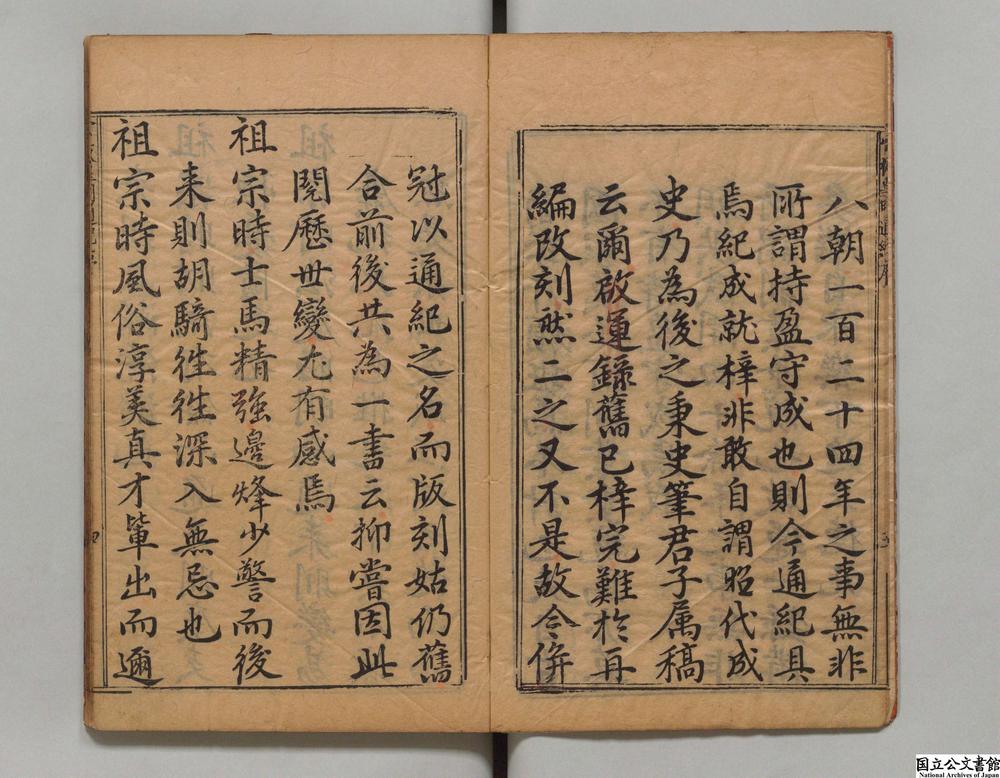 八朝一百二十四年之事無非
所謂持盈守成也則今通紀具
焉紀成就梓非敢自謂昭代成
史乃為後之秉史筆君子属稿
云爾啟運錄舊已梓完難於再
編改刻然二之又不是故今併
冠以通紀之名而版刻姑仍舊
合前後共為一書云抑嘗因此
閱歷世變尤有感焉
祖宗時士馬精強邊烽少警而後
来則胡騎往往深入無忌也
祖宗時風俗淳美真才輩出而邇
国立公文書館
National Archives of Japan